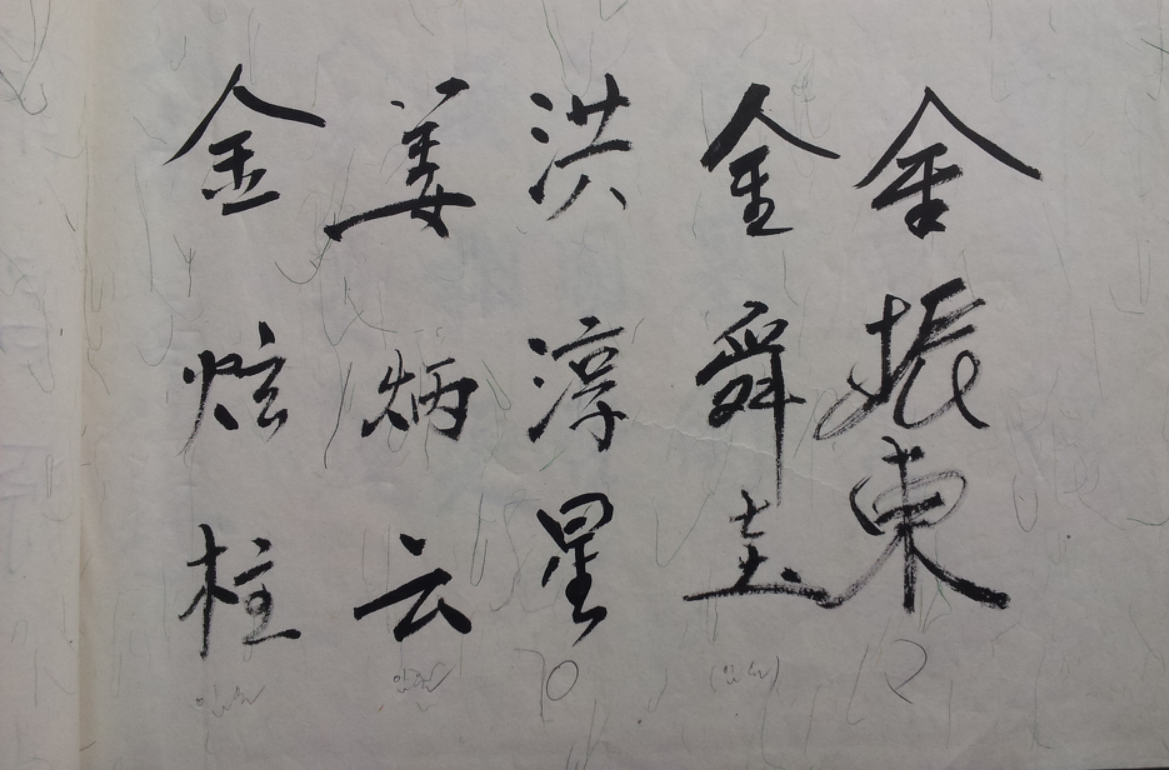 金振東
金舜圭
洪淳星
姜炳云
金炫柱